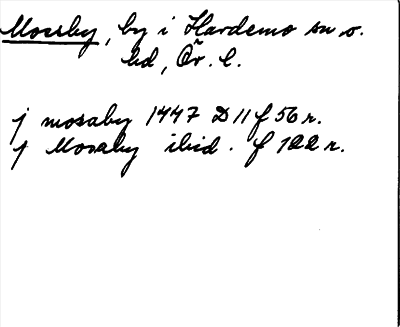 Mossby, by i Hardemo sn o.
hd, Ör. l.
j mosaby 1447 D 11 f 56 r.
j Mosaby ibid. f 122 r.